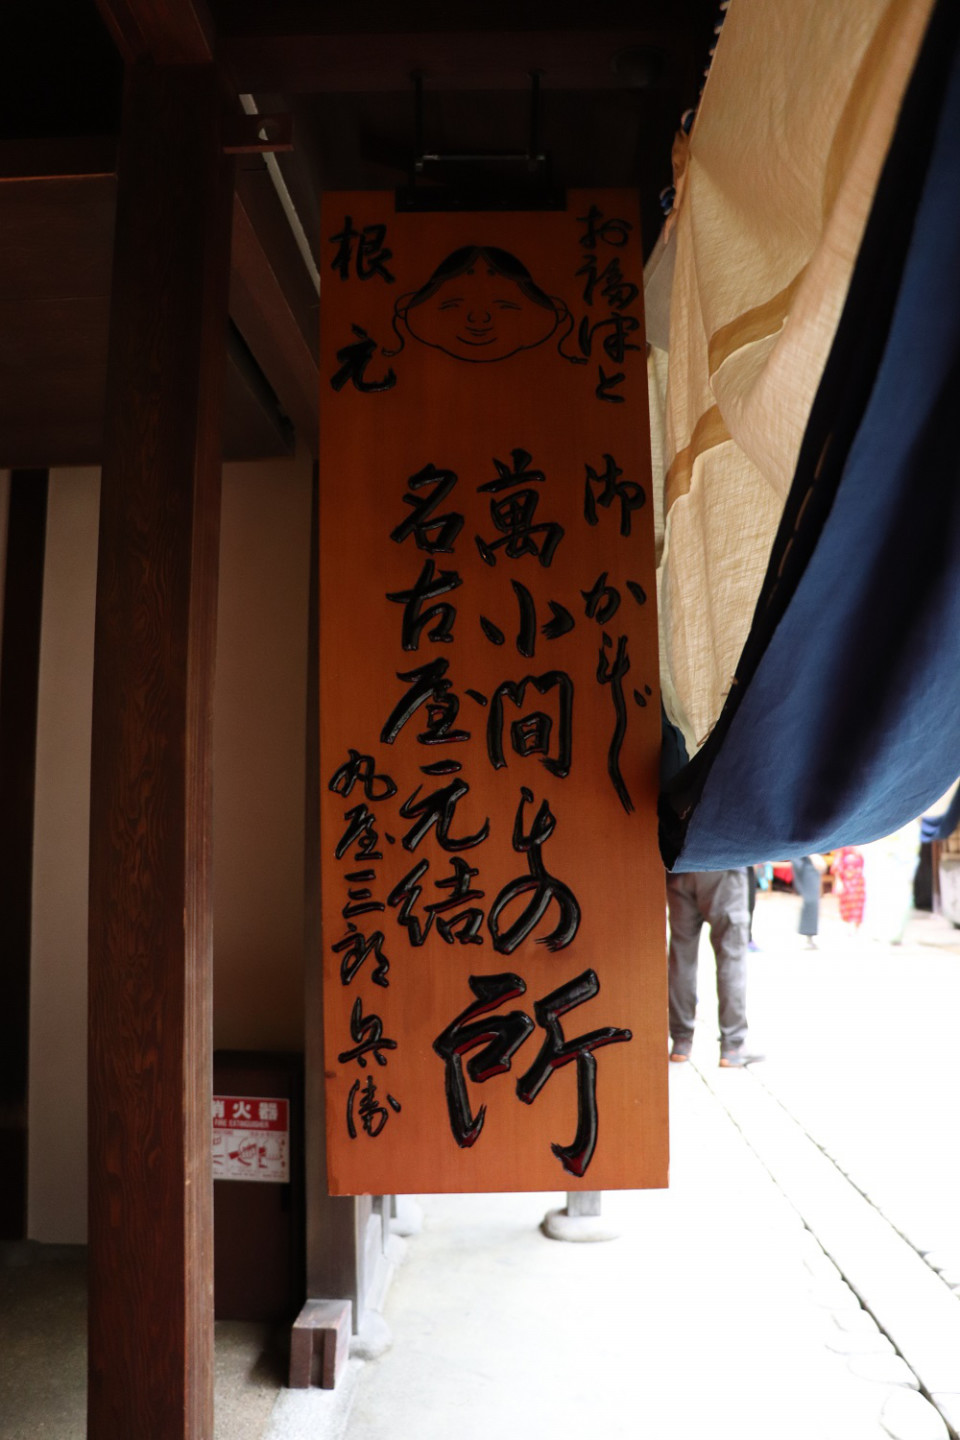 お福津と
御かもじ
萬小間もの所
名古屋元結
丸屋三郎兵衛
根元
消火器
FIRE EXTINGUISHER